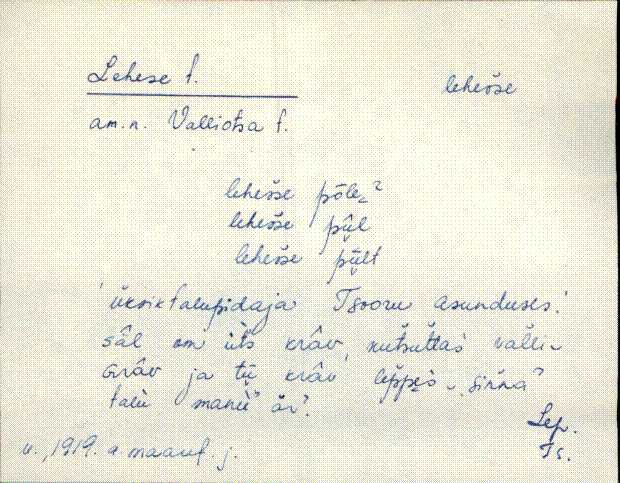 Lehese t.
lehesse
am.n. Valliotsa t.
lehesse põle²
lehesse pūl
lehesse pūlt
'üksiktalupidaja Tsooru asunduses.'
sāl om üt's krāv, kutsuttas valli-
krāv ja tū krāv lõppes sinna
talu manu är.
Lep.
Ts.
u., 1919. a maaref. j.